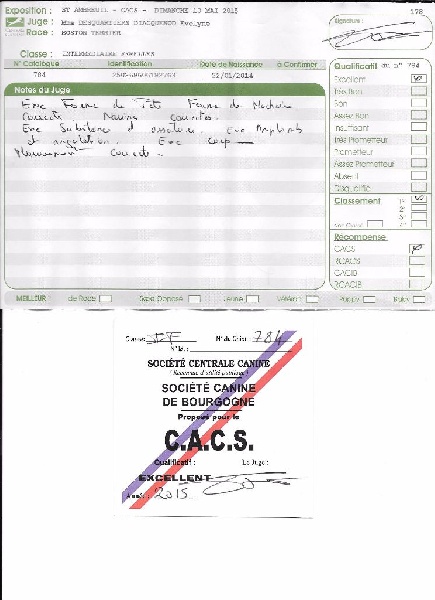 Exposition : ST AMBREUIL - CACS - DIMANCHE 10 MAI 2015
178
Juge : Mme DESQUARTIERS DIACQUENOD Evelyne
Signature :
Race : BOSTON TERRIER
Classe : INTERMEDIAIRE FEMELLES
N° Catalogue Identification Date de Naissance à Confirmer
784 22/01/2014
Qualificatif du n° 784
Excellent
Très Bon
Bon
Assez Bon
Insuffisant
Très Prometteur
Prometteur
Assez Prometteur
Absent
Disqualifié
Notes du Juge
Exc Forme de Tête Forme de Machoire
Correcte
Exc Substance et ossature. Exc Aplombs
et angulation. Exc corps
Mouvement correct.
Classement 1er
2
3
4
Non Classé
Récompense
CACS
RCACS
CACIB
RCACIB
MEILLEUR : de Race Sexe Opposé Jeune Vétéran Puppy Baby
Classe: IF N° du Chien: 784
SOCIÉTÉ CENTRALE CANINE
(Reconnue d'utilité publique)
SOCIÉTÉ CANINE
DE BOURGOGNE
Proposé pour le
C.A.C.S.
Qualificatif : Le Juge :
EXCELLENT
Année : 2015